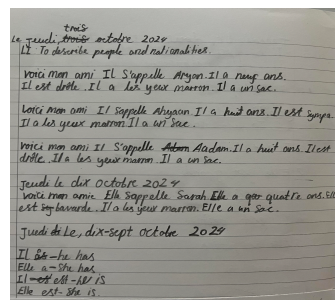 trois
Le jeudi, trois octobre 2024
LI To describe people and nationalities.
Voici mon ami Il S'appelle Aryan. Il a neuf ans.
Il est drôle. Il a les yeux marron. Il a un sac.
Voici mon ami Il Sappelle Ahyaan Il a huit ans. Il est sympa.
Il a les yeux marron Il a un Sac.
Voici mon ami Il S'appelle Adam Aadam. Il a huit ans. Il est
drôle. Il a les yeux marron. Il a un Sac.
Jeudi le dix Octobre 2024
Voici mon amie Elle Sappelle Sarah Elle a quatre ans. Elle
est bavarde. Il a les yeux marron. Elle a un Sac.
Jeudi Le, dix-sept Octobre 2024
Il a -he has
Elle a - She has
Il est est -he is
Elle est - She is.